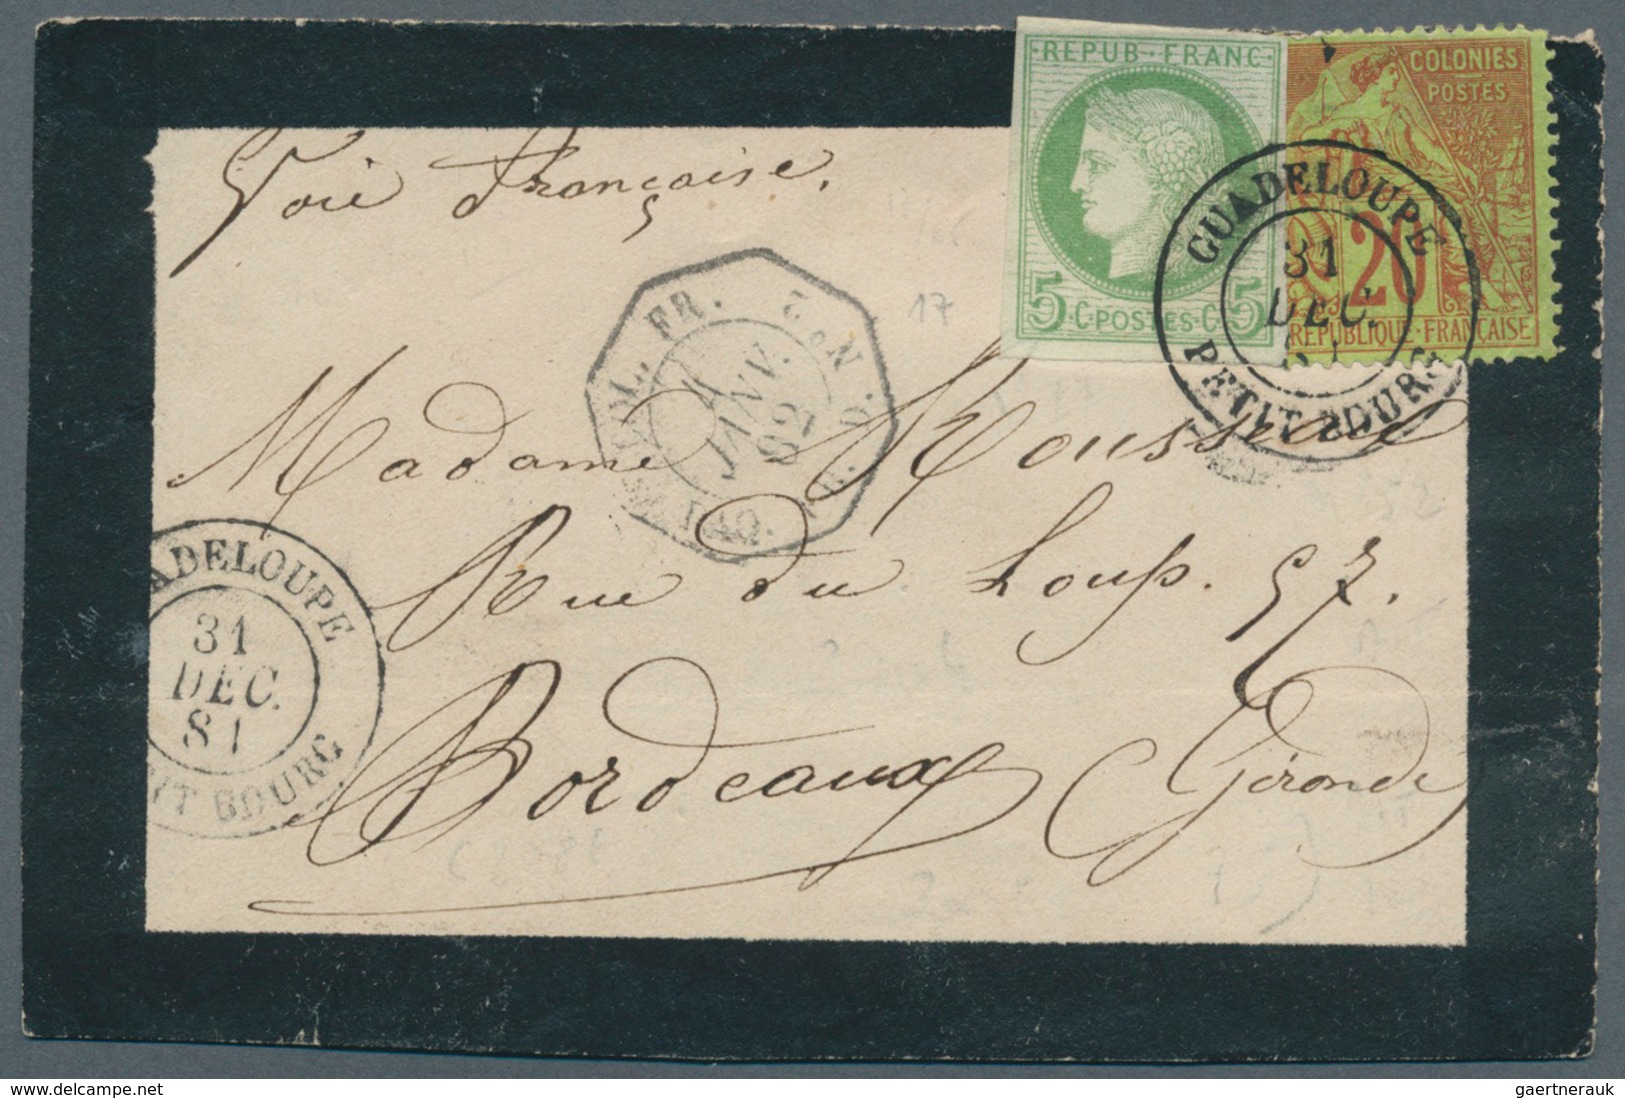 Voie Française.
REPUB · FRANC ·
5 · C · POSTES · C · 5
COLONIES
POSTES
20
RÉPUBLIQUE FRANÇAISE
GUADELOUPE
31
DEC.
81
PETIT-BOURG
COL. FR.
PAQ. FR.
2 N.
1
JANV.
82
17
Madame Rousseau
Rue du Loup. 57.
Bordeaux (Gironde
ADELOUPE
31
DEC.
81
IT BOURG
delcampe.net
gaertnerauk